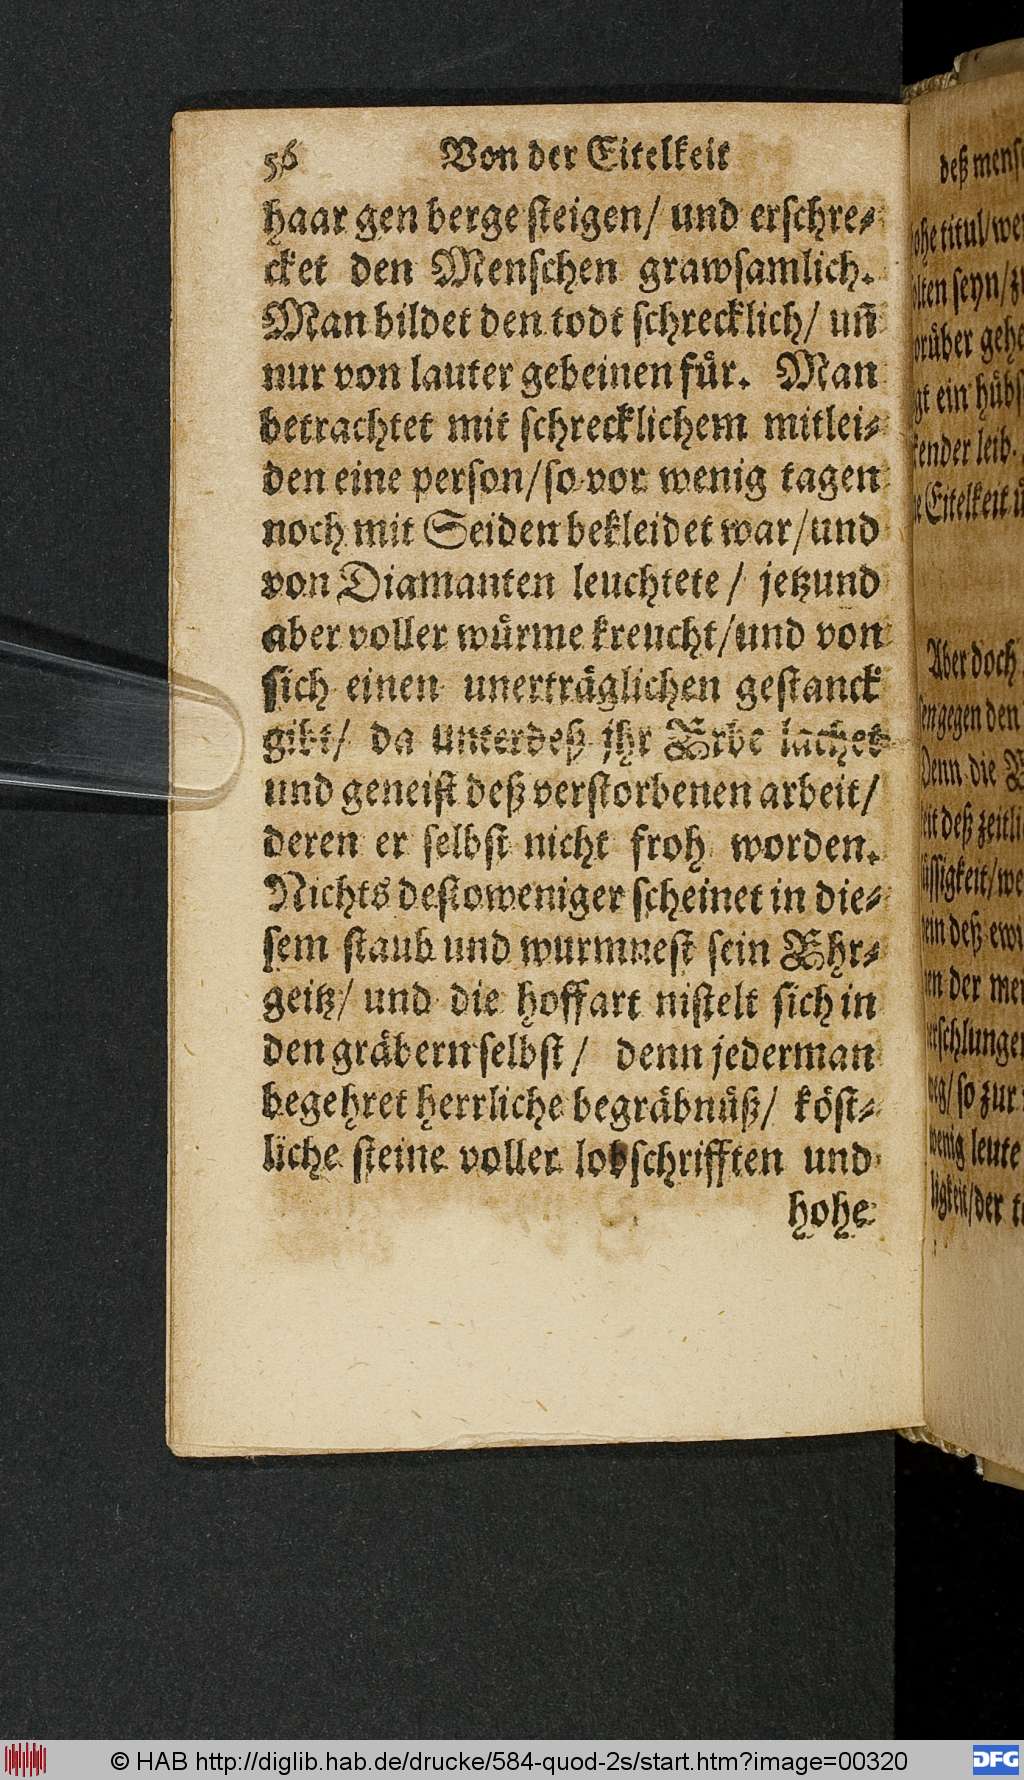 56 Von der Eitelkeit
haar gen berge steigen/ und erschre⸗
cket den Menschen grawsamlich.
Man bildet den todt schrecklich/ uñ
nur von lauter gebeinen fuͤr. Man
betrachtet mit schrecklichem mitlei⸗
den eine person/so vor wenig tagen
noch mit Seiden bekleidet war/und
von Diamanten leuchtete/ jetzund
aber voller wuͤrme kreucht/und von
sich einen unertraͤglichen gestanck
gibt/ da unterdeß jhr Erbe lachet
und geneist deß verstorbenen arbeit/
deren er selbst nicht froh worden.
Nichts destoweniger scheinet in die⸗
sem staub und wurmnest sein Ehr⸗
geitz/ und die hoffart nistelt sich in
den graͤbern selbst/ denn jederman
begehret herrliche begraͤbnuͤß/ koͤst⸗
liche steine voller lobschrifften und
hohe
deß mens
hohe titul/we
seyn/
vorüber gehe
ein hübs
leib.
Eitelkeit
Aber doch
gegen den
Denn die
deß zeitli
deß ewi
der me
so zur
wenig leute
der
© HAB http://diglib.hab.de/drucke/584-quod-2s/start.htm?image=00320
DFG